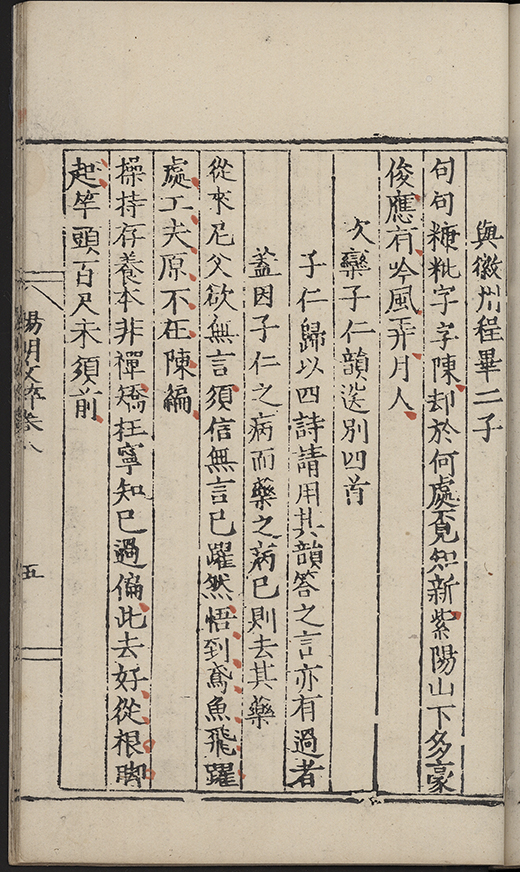 與徽州程畢二子
句句糠粃字字陳却於何處覓知新紫陽山下多豪
俊應有吟風弄月人
次欒子仁韻送別四首
子仁歸以四詩請用其韻答之言亦有過者
蓋因子仁之病而藥之病已則去其藥
從來尼父欲無言須信無言已躍然悟到鳶魚飛躍
處工夫原不在陳編
操持存養本非禪矯枉寧知已過偏此去好從根脚
起竿頭百尺未須前
陽明文粹卷八
五